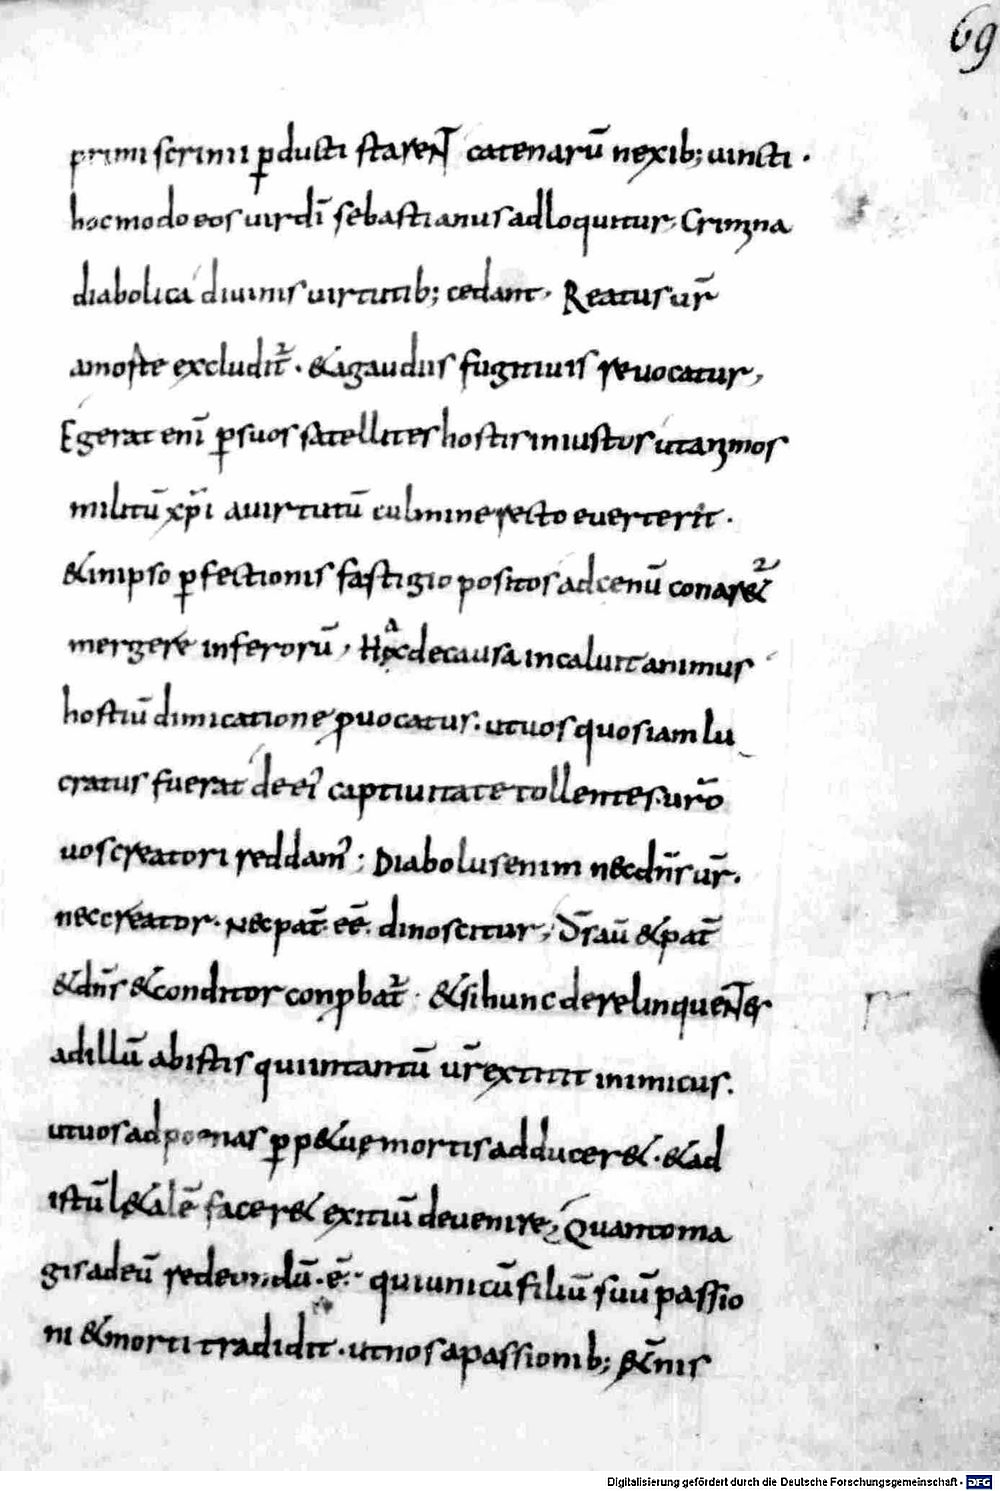 69
primi scrinii ꝑducti starent̄ catenarū nexib; uincti ·
hocmodo eos uir dī sebastianus adloquitur, Crimina
diabolica diuinis uirtutib; cedant, Reatus ur̄
amoste excludit᷑ · & agaudiis fugitiuis reuocatur,
Egerat enī ꝑsuos satellites hostis iniustus ut animos
militū xp̄i auirtutū culmine recto euerterit ·
& inipso ꝑfectionis fastigio positos adcenū conar&᷑
mergere inferorū, Hac decausa incaluit animus
hostiū dimicatione ꝓuocatus. ut uos quos iam lu
cratus fuerat de ei' captiuitate tollentes. ur̄o
uos creatori reddam'; Diabolus enim nec dn̄s ur̄.
nec creator. Nec pat̄ eē. dinoscitur, Dꝭ aū & pat̄
& dn̄s & conditor conꝓbat᷑ · & si hunc derelinquentes
adillū abistis qui intantū ur̄ extitit inimicus.
ut uos ad poenas ꝑp&uę mortis adducer& · & ad
istū l&alē facer& exitiū deuenire, Quanto ma
gis adeū redeundū · ē · qui unicū filiū suū passio
ni & morti tradidit · ut nos apassionib; &̄nis
Digitalisierung gefördert durch die Deutsche Forschungsgemeinschaft - DFG